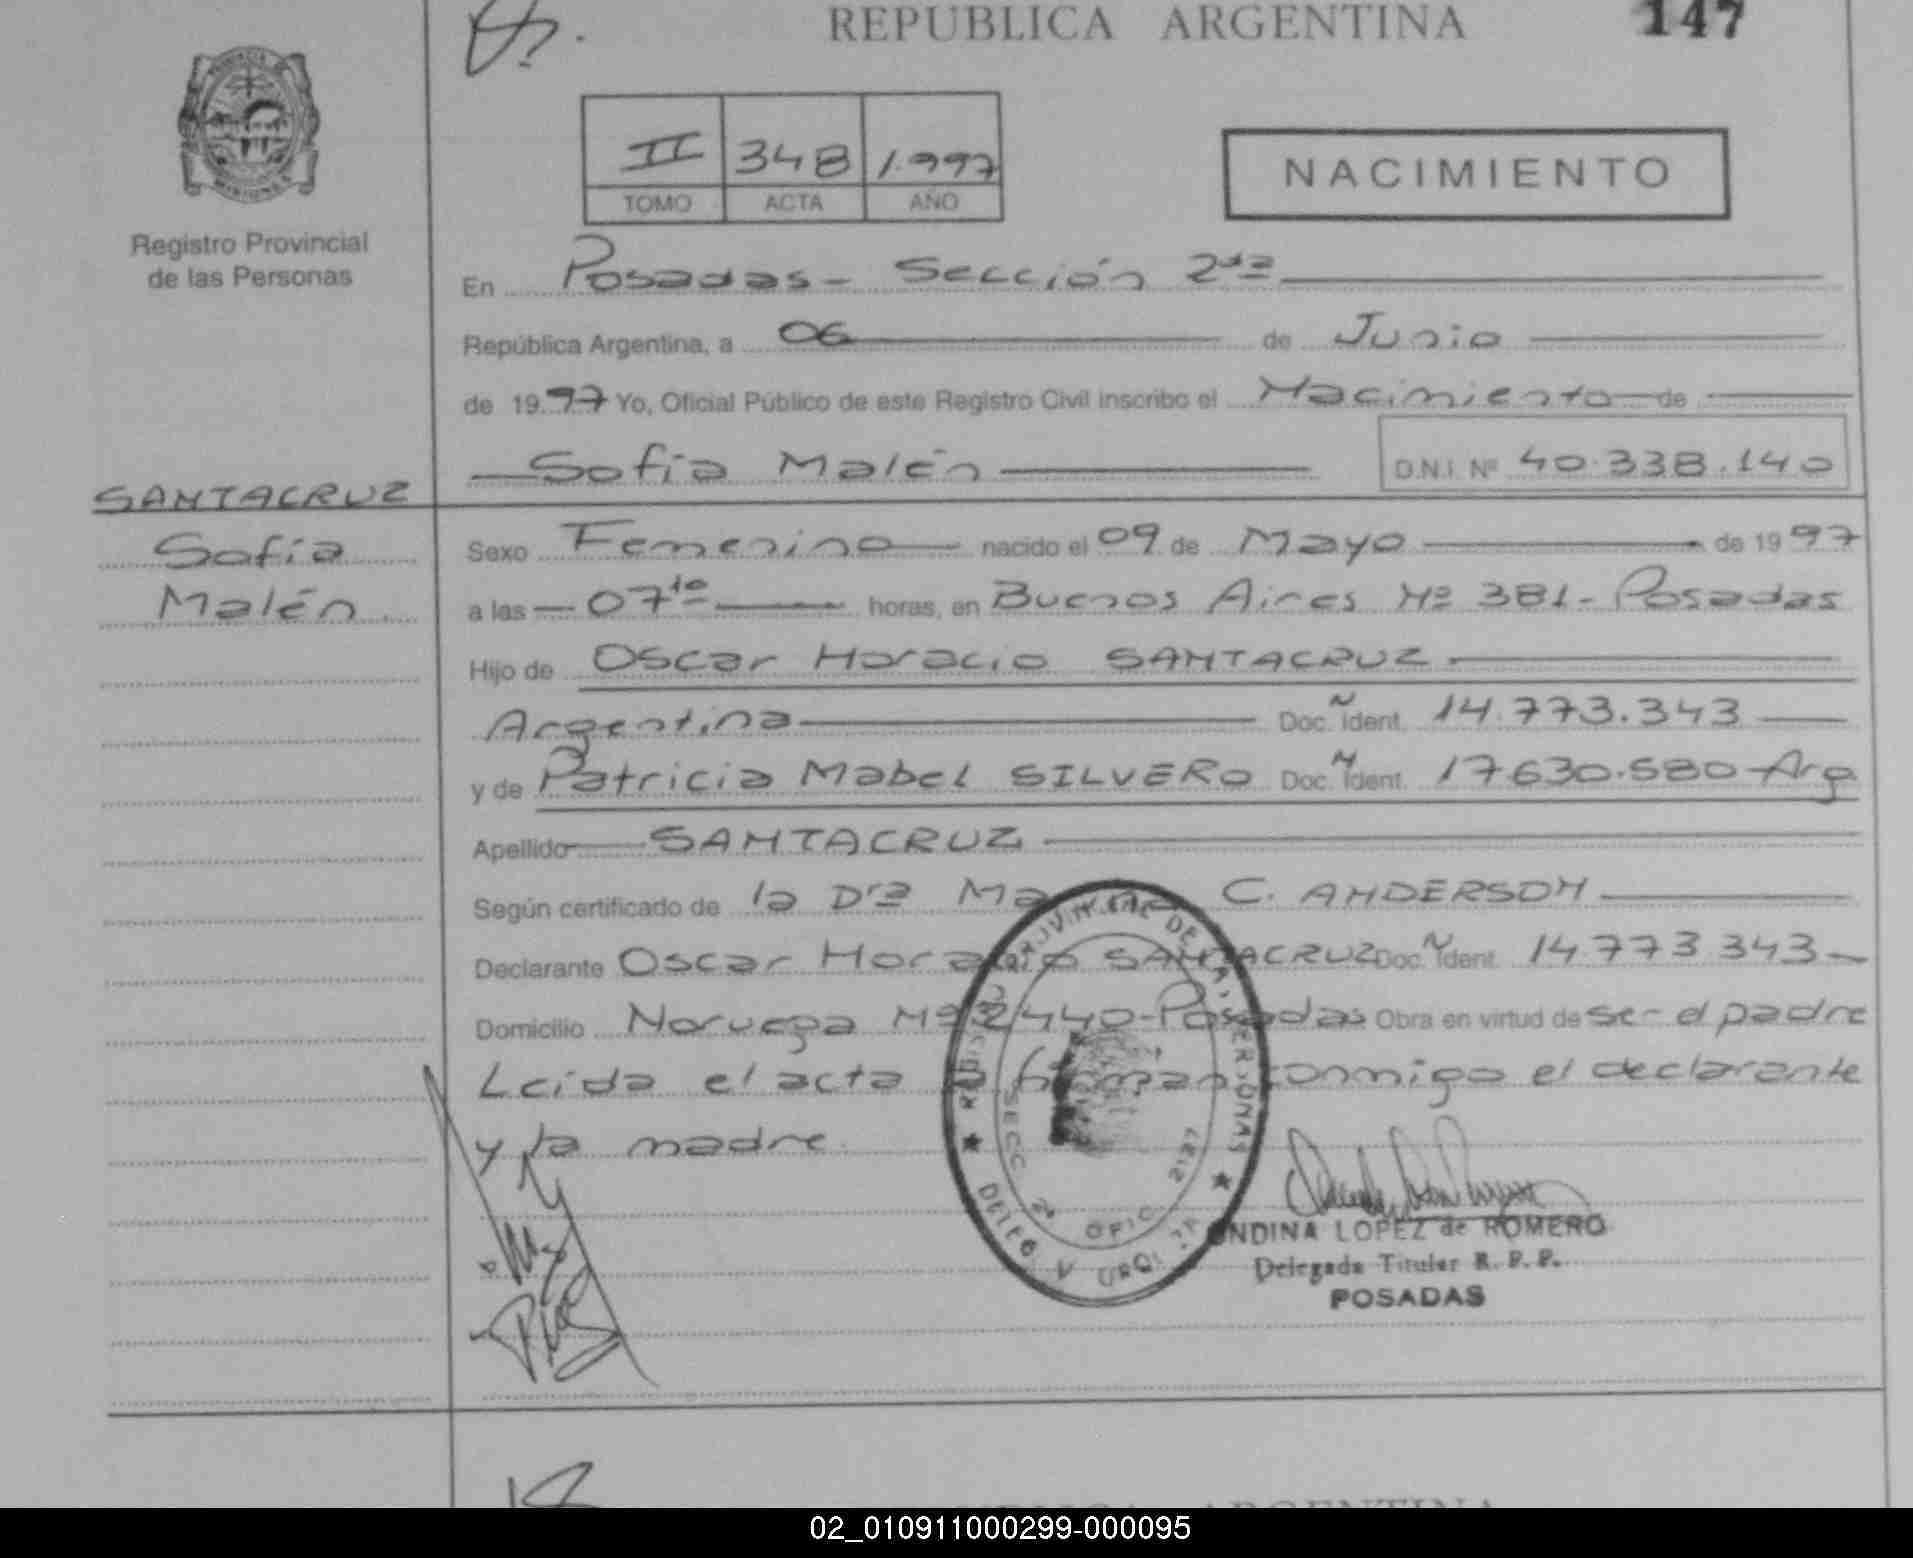 REPUBLICA ARGENTINA
147
II 348 1.997
TOMO ACTA AÑO
NACIMIENTO
MISIONES
Registro Provincial
de las Personas
En Posadas - Sección 2da
República Argentina, a 06 de Junio
de 1997 Yo, Oficial Público de este Registro Civil inscribo el Nacimiento de
Sofía Malén D.N.I. Nº 40.338.140
SANTACRUZ
Sofía
Malén
Sexo Femenino nacido el 09 de Mayo de 1997
a las 07 10 horas, en Buenos Aires Nº 381 - Posadas
Hijo de Oscar Horacio SANTACRUZ
Argentina Doc. Ident. 14.773.343
y de Patricia Mabel SILVERO Doc. Ident. 17.630.580 Arg
Apellido SANTACRUZ
Según certificado de la Dra C. ANDERSON
Declarante Oscar Horacio SANTACRUZ Doc. Ident. 14.773.343
Domicilio Noruega Nº 2440 - Posadas Obra en virtud de ser el padre
Leida el acta la firman conmigo el declarante
y la madre.
SECC 2ª OFIC 2137
ONDINA LOPEZ de ROMERO
Delegada Titular R. P. P.
POSADAS
REPUBLICA ARGENTINA
02_010911000299-000095